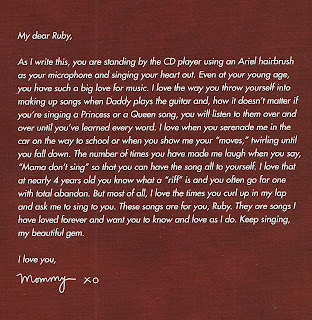 My dear Ruby,
As I write this, you are standing by the CD player using an Ariel hairbrush
as your microphone and singing your heart out. Even at your young age,
you have such a big love for music. I love the way you throw yourself into
making up songs when Daddy plays the guitar and, how it doesn't matter if
you're singing a Princess or a Queen song, you will listen to them over and
over until you've learned every word. I love when you serenade me in the
car on the way to school or when you show me your "moves," twirling until
you fall down. The number of times you have made me laugh when you say,
"Mama don't sing" so that you can have the song all to yourself. I love that
at nearly 4 years old you know what a "riff" is and you often go for one
with total abandon. But most of all, I love the times you curl up in my lap
and ask me to sing to you. These songs are for you, Ruby. They are songs I
have loved forever and want you to know and love as I do. Keep singing,
my beautiful gem.
I love you,
Mommy xo